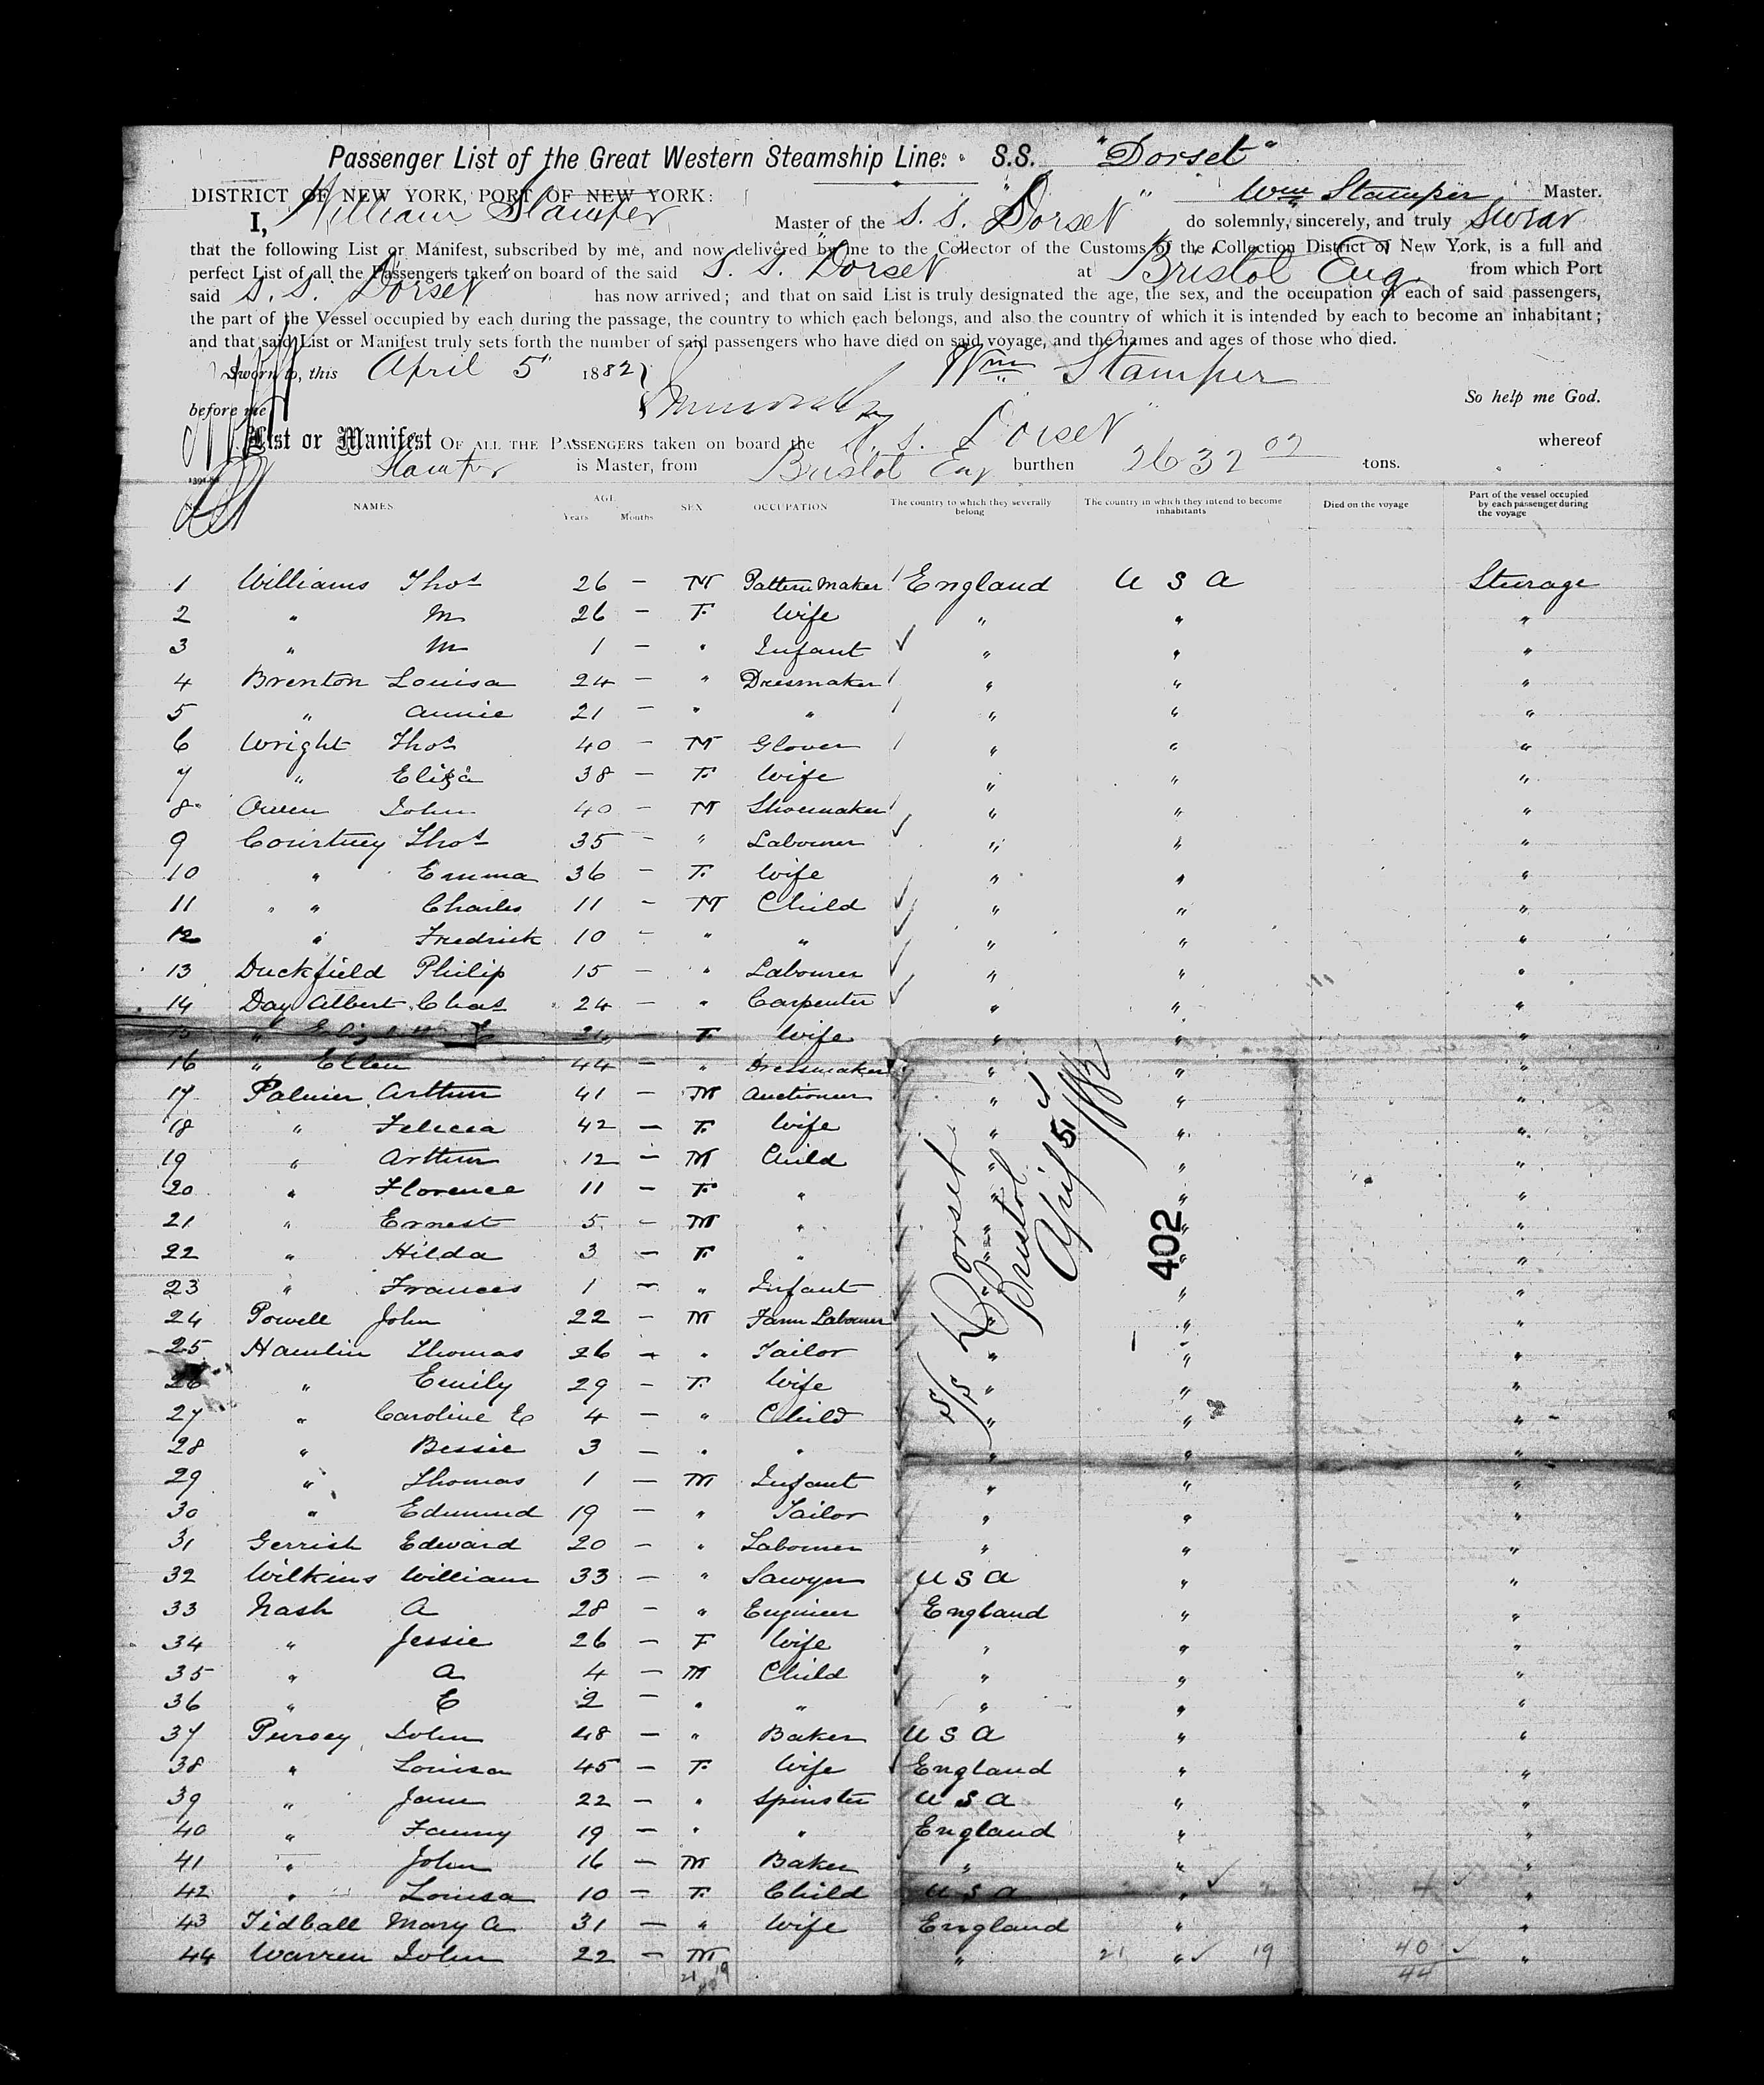 Passenger List of the Great Western Steamship Line: S.S. "Dorset"
DISTRICT OF NEW YORK, PORT OF NEW YORK: Wm Stamper Master.
I, William Stamper Master of the S. S. "Dorset" do solemnly, sincerely, and truly Swear
that the following List or Manifest, subscribed by me, and now delivered by me to the Collector of the Customs of the Collection District of New York, is a full and
perfect List of all the Passengers taken on board of the said S. S. "Dorset" at Bristol Eng. from which Port
said S. S. Dorset has now arrived; and that on said List is truly designated the age, the sex, and the occupation of each of said passengers,
the part of the Vessel occupied by each during the passage, the country to which each belongs, and also the country of which it is intended by each to become an inhabitant;
and that said List or Manifest truly sets forth the number of said passengers who have died on said voyage, and the names and ages of those who died.
Sworn to, this April 5 1882 Wm Stamper
before me So help me God.
List or Manifest OF ALL THE PASSENGERS taken on board the S. S. Dorset" whereof
Stamper is Master, from Bristol Eng burthen 2632 tons.
NAMES AGE Years Months SEX OCCUPATION The country to which they severally belong The country in which they intend to become inhabitants Died on the voyage Part of the vessel occupied by each passenger during the voyage
1 Williams Thos 26 — M Pattern Maker England U S A Steerage
2 " M 26 — F. Wife " " "
3 " M 1 — " Infant " " "
4 Brenton Louisa 24 — " Dressmaker " " "
5 " Annie 21 — " " " " "
6 Wright Thos 40 — M Glover " " "
7 " Eliza 38 — F. Wife " " "
8 Owen John 40 — M Shoemaker " " "
9 Courtney Thos 35 — " Labourer " " "
10 " Emma 36 — F. Wife " " "
11 " Charles 11 — M Child " " "
12 " Fredrick 10 — " " " " "
13 Duckfield Philip 15 — " Labourer " " "
14 Day Albert Chas 24 — " Carpenter " " "
15 " — F. Wife " " "
16 " Ellen 44 — " Dressmaker " " "
17 Palmer Arthur 41 — M Auctioneer " " "
18 " Felicia 42 — F. Wife " " "
19 " Arthur 12 — M Child " " "
20 " Florence 11 — F. " " " "
21 " Ernest 5 — M " " " "
22 " Hilda 3 — F. " " " "
23 " Frances 1 — " Infant " " "
24 Powell John 22 — M Farm Labourer " " "
25 Hamlin Thomas 26 — " Tailor " " "
26 " Emily 29 — F. Wife " " "
27 " Caroline E 4 — " Child " " "
28 " Bessie 3 — " " " " "
29 " Thomas 1 — M Infant " " "
30 " Edmund 19 — " Tailor " " "
31 Gerrish Edward 20 — " Labourer " " "
32 Wilkins William 33 — " Sawyer U S A " "
33 Nash A 28 — " Engineer England " "
34 " Jessie 26 — F Wife " " "
35 " A 4 — M Child " " "
36 " E 2 — " " " " "
37 Pursey John 48 — " Baker U S A " "
38 " Louisa 45 — F. Wife England " "
39 " Jane 22 — " Spinster U S A " "
40 " Fanny 19 — " " England " "
41 " John 16 — M Baker " " "
42 " Louisa 10 — F. Child U S A " "
43 Tidball Mary A 31 — " Wife England " "
44 Warren John 22 — M " " "
21 19 40
21 19 44
S/S Dorset
Bristol
April 5 1882
402